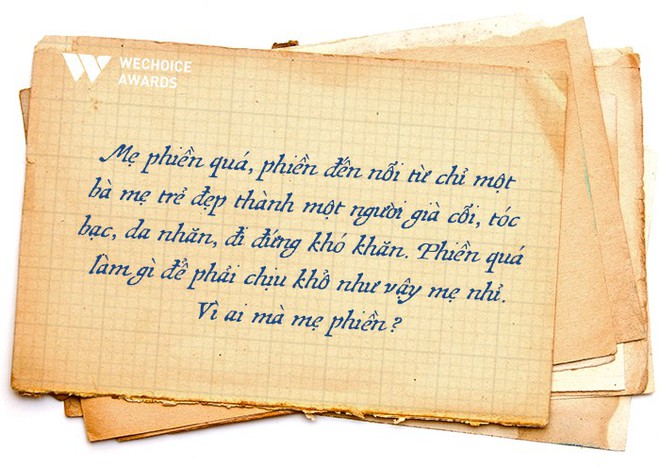 WECHOICE
AWARDS
Mẹ phiền quá, phiền đến nỗi từ chỉ một
bà mẹ trẻ đẹp thành một người già cỗi, tóc
bạc, da nhăn, đi đứng khó khăn. Phiền quá
làm gì để phải chịu khổ như vậy mẹ nhỉ.
Vì ai mà mẹ phiền?